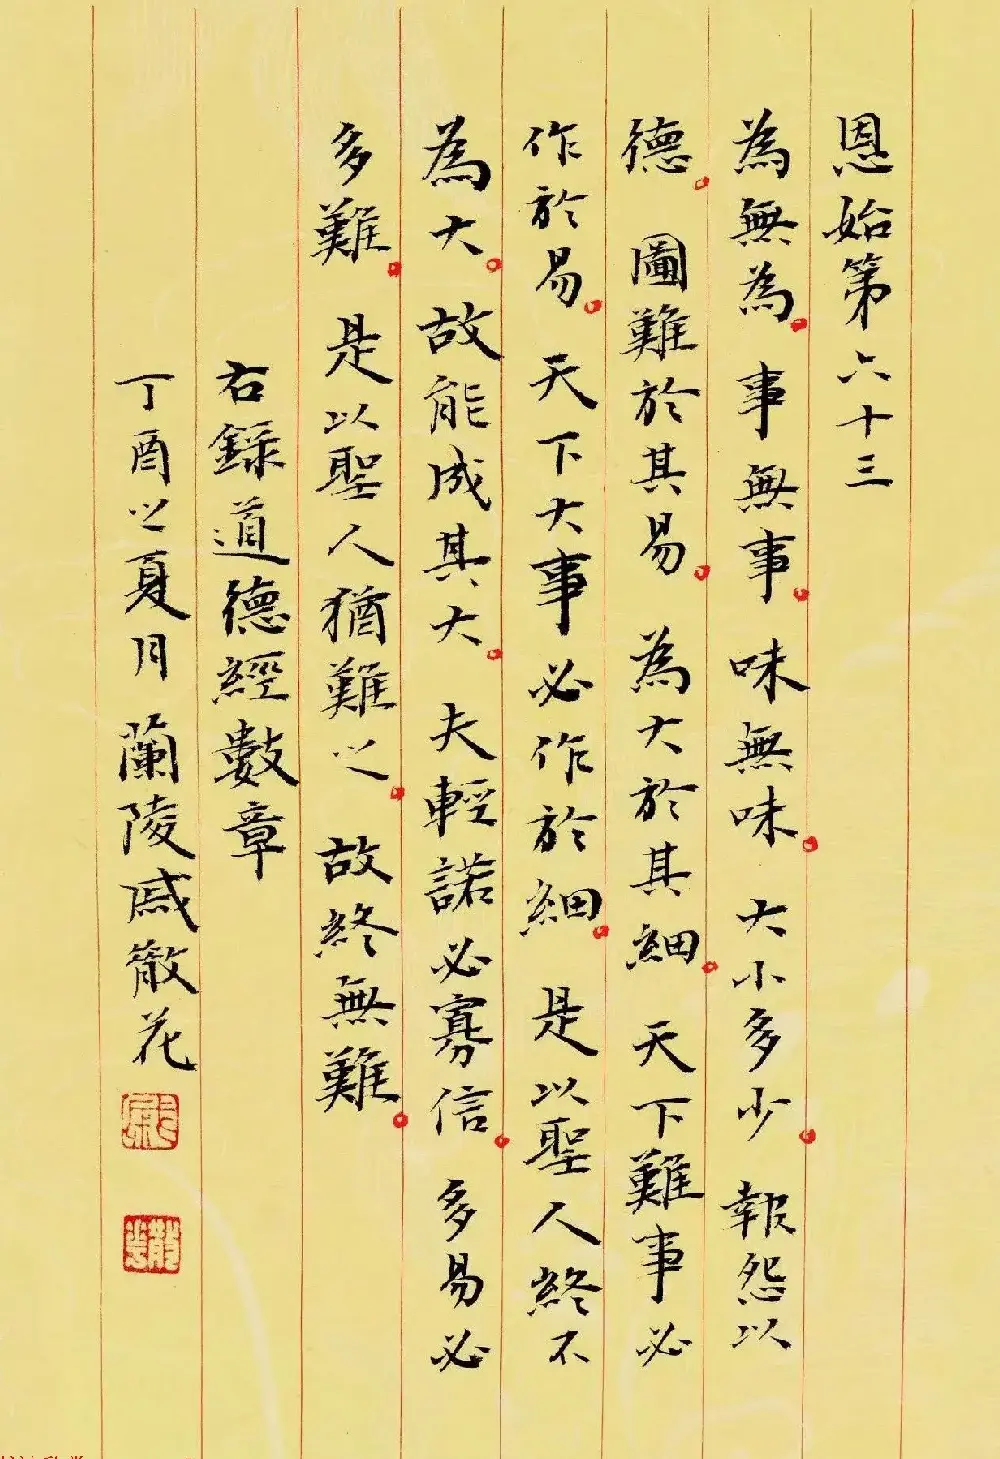 恩始第六十三
為無為。事無事。味無味。大小多少。報怨以
德。圖難於其易。為大於其細。天下難事必
作於易。天下大事必作於細。是以聖人終不
為大。故能成其大。夫輕諾必寡信。多易必
多難。是以聖人猶難之。故終無難。
右錄道德經數章
丁酉之夏月蘭陵戚散花